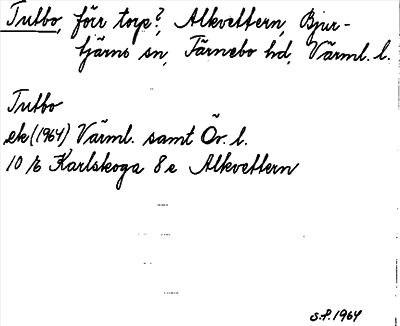 Tutbo, förr torp?, Alkvettern, Bjur-
tjärns sn, Färnebo hd, Värml. l.
Tutbo
ek (1964) Värml. samt Ör. l.
10 /6 Karlskoga 8 e Alkvettern
S.P. 1964